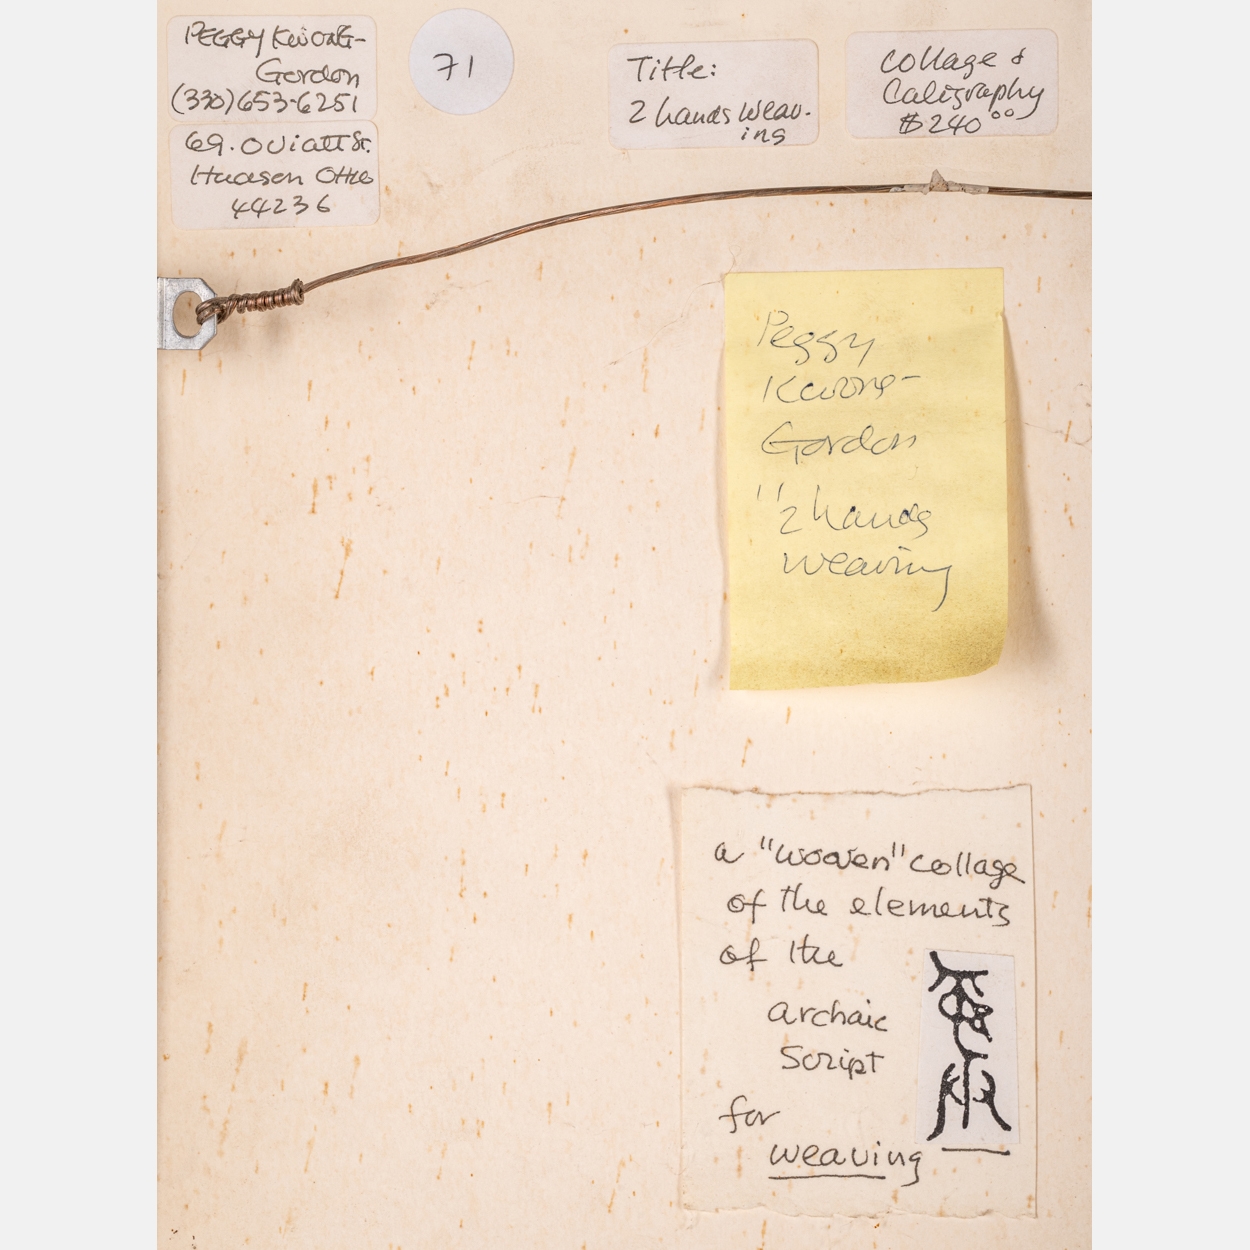 PEGGY KWONG-
Gordon
(330) 653-6251
69. Oviatt St.
Hudson Ohio
44236
71
Title:
2 hands weav-
ing
Collage &
Caligraphy
$240⁰⁰
Peggy
Kwong-
Gordon
"2 hands
weaving
a "woven" collage
of the elements
of the
archaic
Script
for
weaving